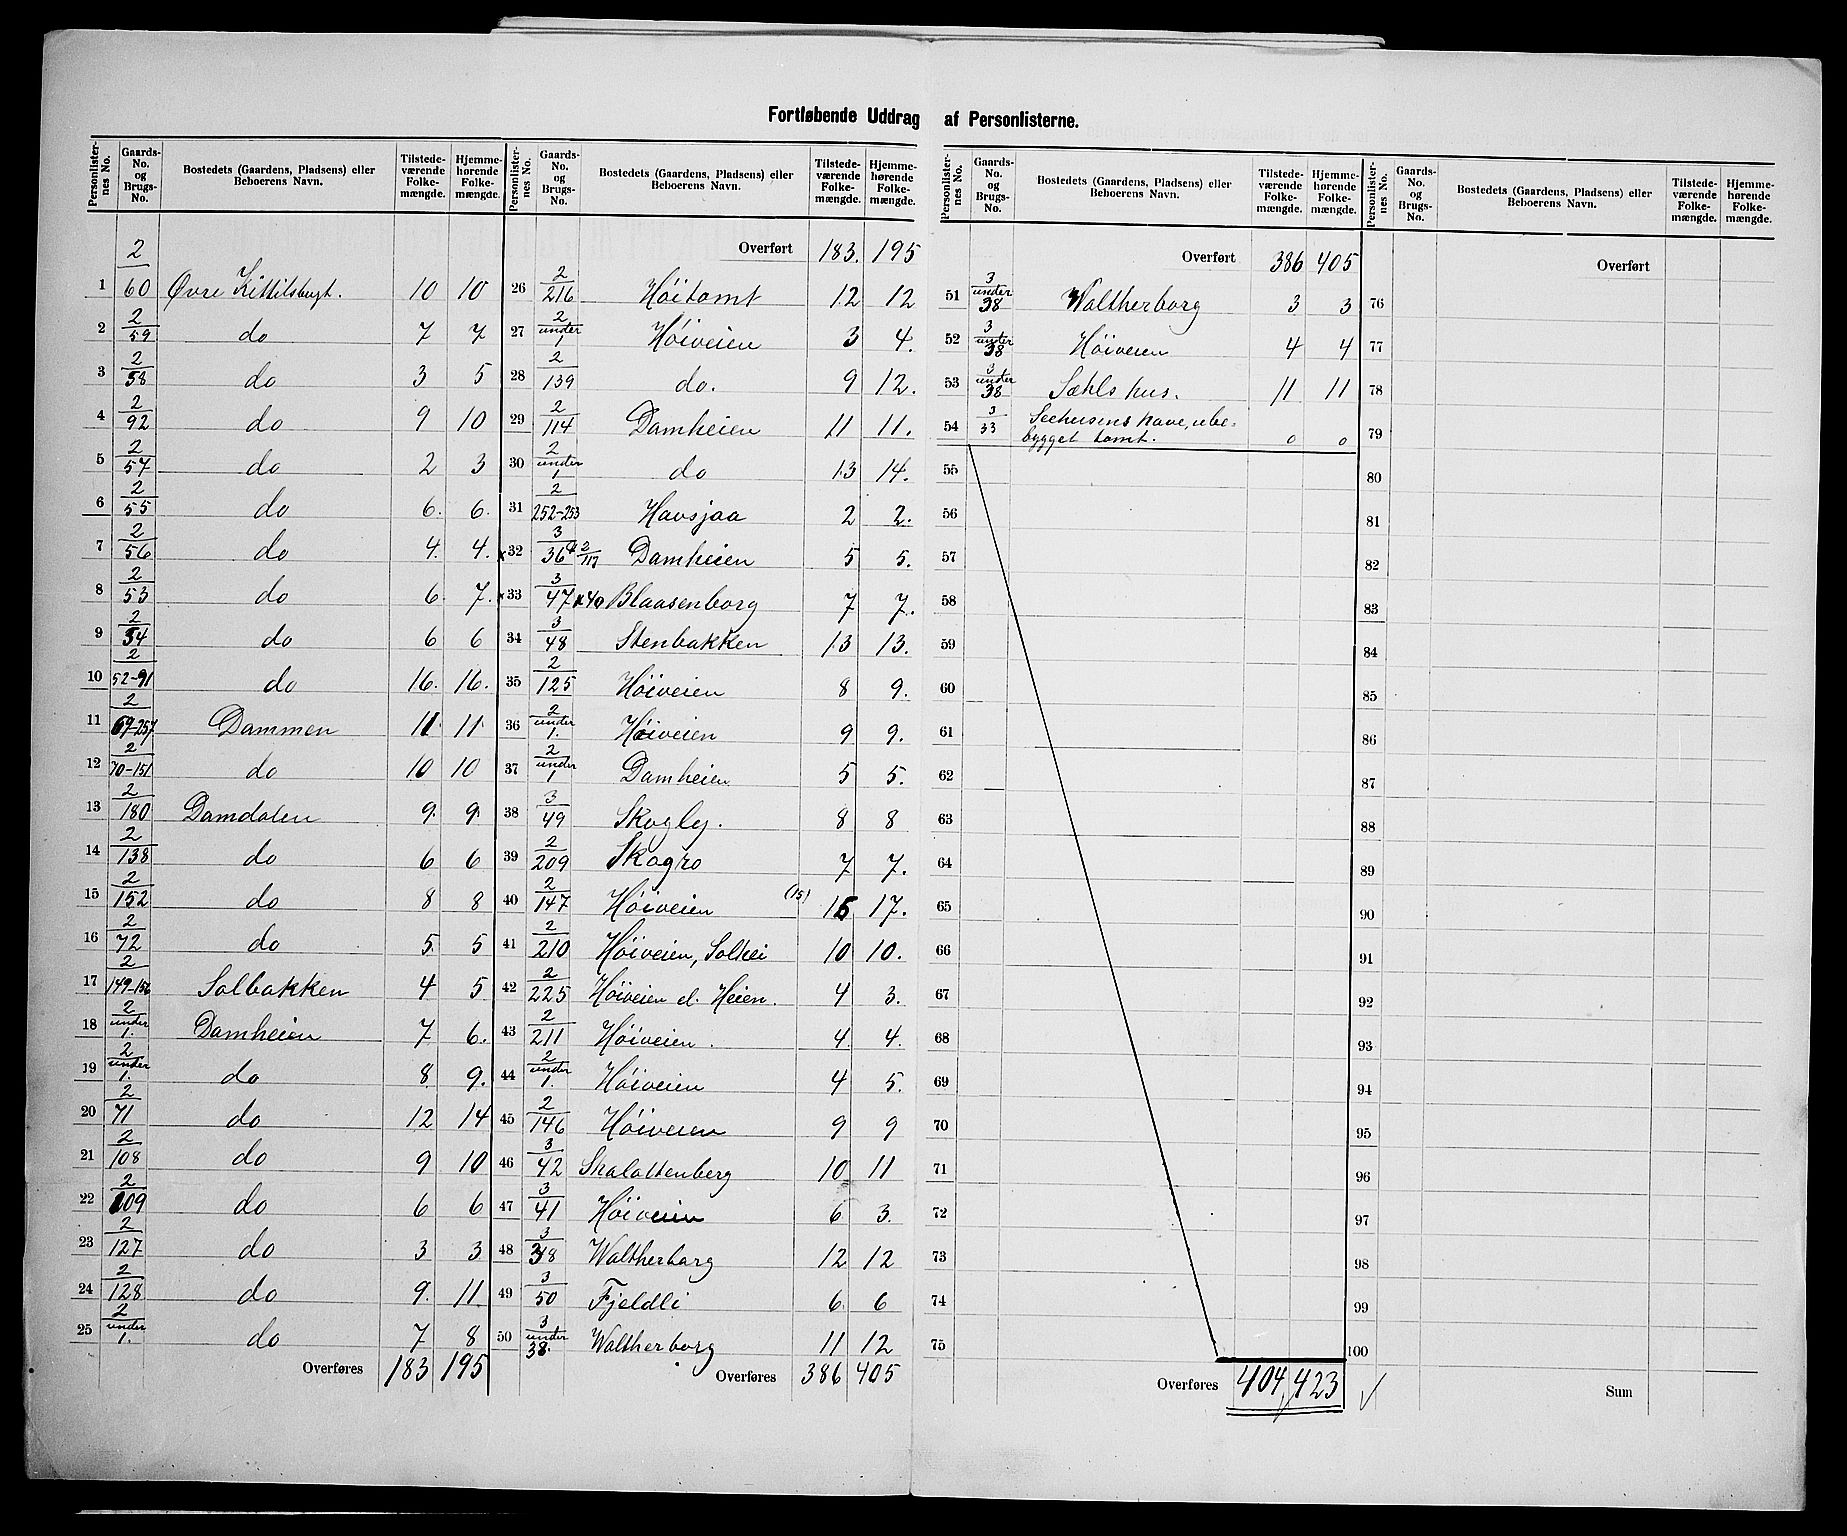 Fortløbende Uddrag af Personlisterne.
Personlister-nes No. | Gaards-No. og Brugs-No. | Bostedets (Gaardens, Pladsens) eller Beboerens Navn. | Tilstede-værende Folke-mængde. | Hjemme-hørende Folke-mængde.
1 | 2/60 | Øvre Kittilsbugt. | 10 | 10
2 | 2/59 | do | 7 | 7
3 | 2/58 | do | 3 | 5
4 | 2/92 | do | 9 | 10
5 | 2/57 | do | 2 | 3
6 | 2/55 | do | 6. | 6.
7 | 2/56 | do | 4. | 4.
8 | 2/53 | do | 6. | 7.
9 | 2/54 | do | 6 | 6
10 | 2/52-91 | do | 16. | 16.
11 | 2/69-257 | Dammen | 11. | 11.
12 | 2/70-151 | do | 10 | 10
13 | 2/180 | Damdalen | 9. | 9.
14 | 2/138 | do | 6 | 6
15 | 2/152 | do | 8 | 8
16 | 2/72 | do | 5. | 5
17 | 2/149-156 | Solbakken | 4 | 5
18 | 2/under 1. | Damheien | 7 | 6.
19 | 2/under 1. | do | 8. | 9.
20 | 2/71 | do | 12 | 14
21 | 2/108 | do | 9 | 10
22 | 2/109 | do | 6 | 6
23 | 2/127 | do | 3 | 3
24 | 2/128 | do | 9. | 11.
25 | 2/under 1. | do | 7 | 8
Overføres | 183 | 195
Personlister-nes No. | Gaards-No. og Brugs-No. | Bostedets (Gaardens, Pladsens) eller Beboerens Navn. | Tilstede-værende Folke-mængde. | Hjemme-hørende Folke-mængde.
Overført | 183. | 195
26 | 2/216 | Höitomt | 12 | 12
27 | 2/under 1 | Höiveien | 3 | 4.
28 | 2/139 | do. | 9 | 12.
29 | 2/114 | Damheien | 11 | 11.
30 | 2/under 1. | do | 13 | 14.
31 | 2/252-253 | Havsjaa | 2 | 2.
x 32 | 3/36 & 2/117 | Damheien | 5 | 5.
x 33 | 3/47 x 40 | Blaasenborg | 7 | 7.
34 | 3/48 | Stenbakken | 13 | 13.
35 | 2/125 | Höiveien | 8 | 9.
36 | 2/under 1. | Höiveien | 9 | 9.
37 | 2/under 1 | Damheien | 5 | 5.
38 | 3/49 | Skogly. | 8 | 8
39 | 2/209 | Skogro | 7 | 7.
40 | 2/147 | Höiveien | (15) 15 | 17.
41 | 2/210 | Höiveien, Solhei | 10 | 10.
42 | 2/225 | Höiveien el. Heien. | 4 | 3.
43 | 2/211 | Höiveien. | 4. | 4.
44 | 2/under 1. | Höiveien | 4 | 5.
45 | 2/146 | Höiveien | 9 | 9
46 | 3/42 | Skalottenberg | 10 | 11
47 | 3/41 | Höiveien | 6 | 3.
48 | 3/38 | Waltherborg | 12 | 12
49 | 3/50 | Fjeldli | 6. | 6
50 | 3/under 38. | Waltherborg | 11 | 12
Overføres | 386 | 405
Personlister-nes No. | Gaards-No. og Brugs-No. | Bostedets (Gaardens, Pladsens) eller Beboerens Navn. | Tilstede-værende Folke-mængde. | Hjemme-hørende Folke-mængde.
Overført | 386 | 405
51 | 3/under 38 | Waltherborg | 3 | 3
52 | 3/under 38 | Höiveien | 4 | 4
53 | 3/under 38 | Sæhls hus. | 11 | 11
54 | 3/33 | Seehusens have, ube-
bygget tomt. | 0 | 0
55
56
57
58
59
60
61
62
63
64
65
66
67
68
69
70
71
72
73
74
75
Overføres | 404 | 423
Personlister-nes No. | Gaards-No. og Brugs-No. | Bostedets (Gaardens, Pladsens) eller Beboerens Navn. | Tilstede-værende Folke-mængde. | Hjemme-hørende Folke-mængde.
Overført
76
77
78
79
80
81
82
83
84
85
86
87
88
89
90
91
92
93
94
95
96
97
98
99
100
Sum